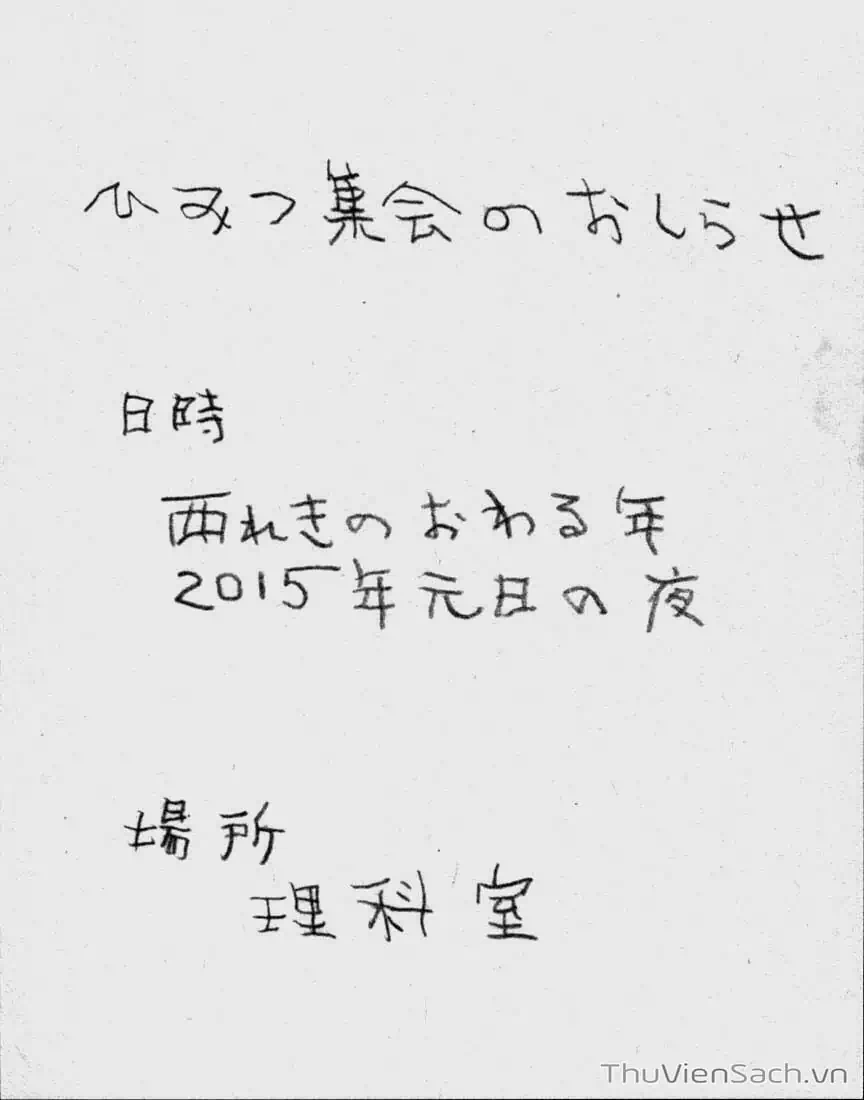 ひみつ集会のおしらせ
日時
西れきのおわる年
2015年元日の夜
場所
理科室
ThuVienSach.vn